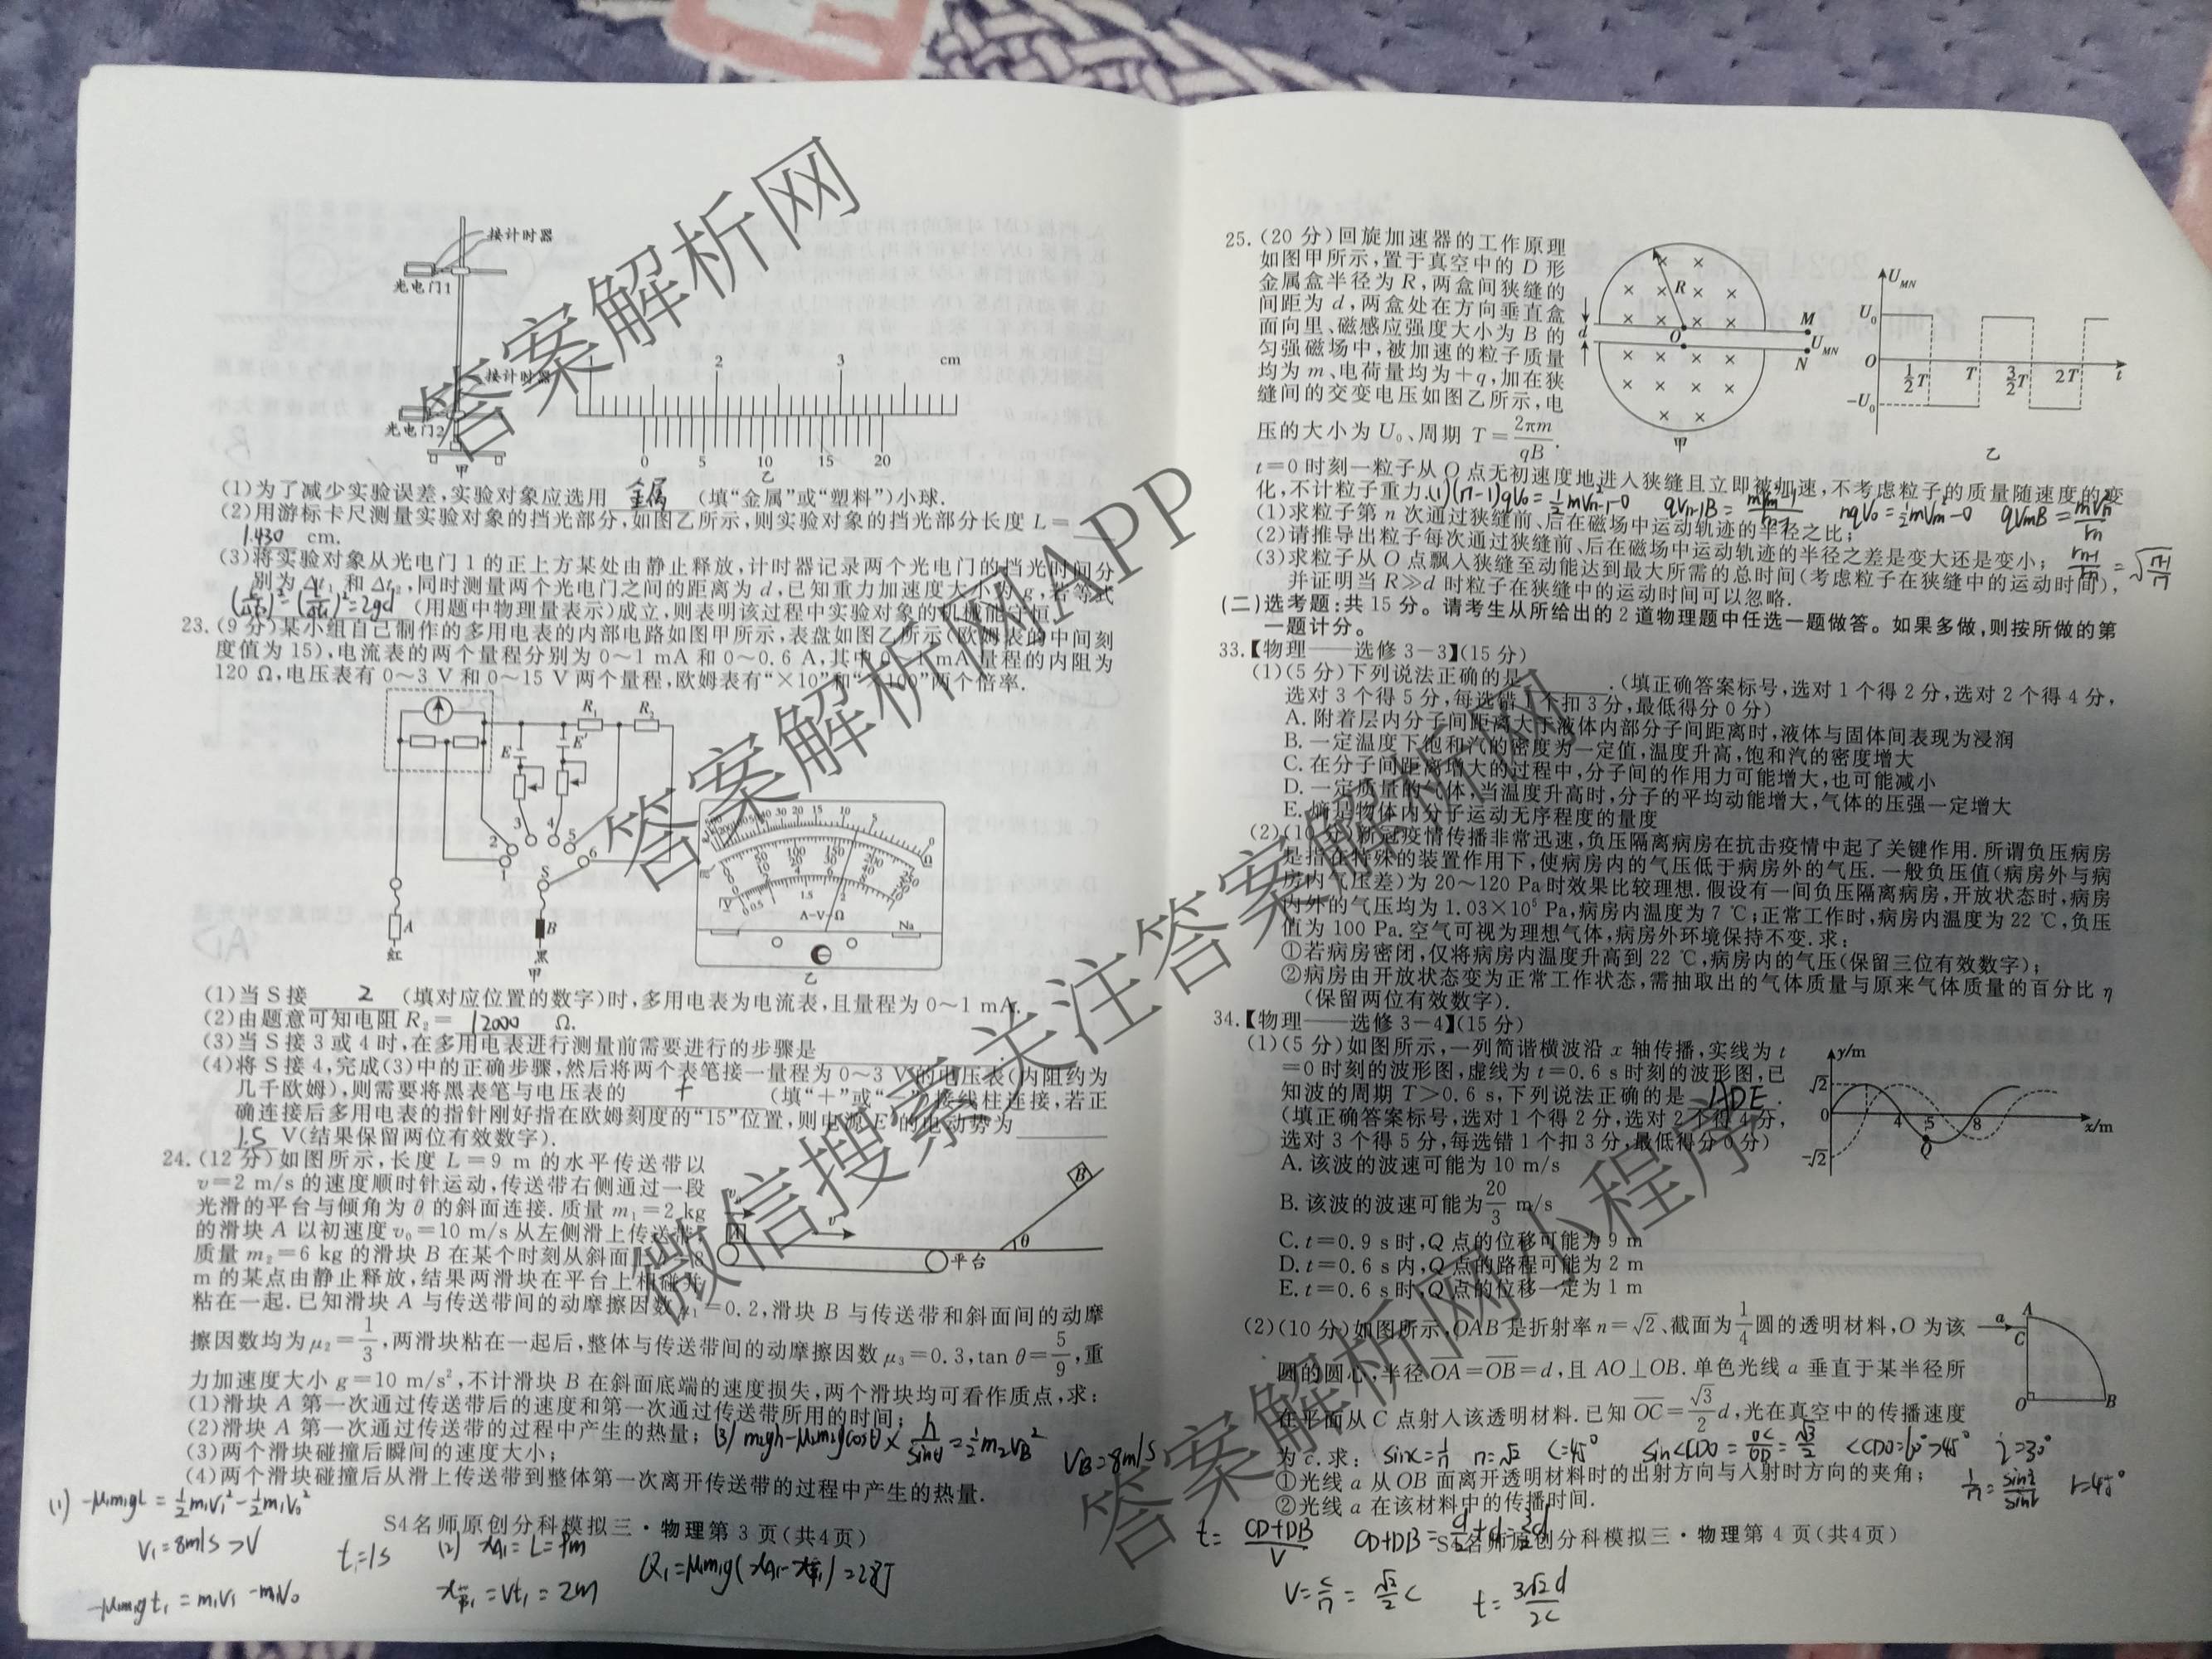 接计时器
光电门1
接计时器
光电门2
甲
1 2 3 cm
0 5 10 15 20
乙
(1)为了减少实验误差,实验对象应选用 金属 (填“金属”或“塑料”)小球.
(2)用游标卡尺测量实验对象的挡光部分,如图乙所示,则实验对象的挡光部分长度 L=
1.430 cm.
(3)将实验对象从光电门 1 的正上方某处由静止释放,计时器记录两个光电门的挡光时间分
别为 Δt₁ 和 Δt₂,同时测量两个光电门之间的距离为 d,已知重力加速度大小为 g,若等式
(用题中物理量表示)成立,则表明该过程中实验对象的机械能守恒.
23.(9 分)某小组自己制作的多用电表的内部电路如图甲所示,表盘如图乙所示(欧姆表的中间刻
度值为 15),电流表的两个量程分别为 0~1 mA 和 0~0.6 A,其中 0~1 mA 量程的内阻为
120 Ω,电压表有 0~3 V 和 0~15 V 两个量程,欧姆表有“×10”和“×100”两个倍率.
R₁ R₂
E E′
1 2 3 4 5 6
S
A B
红 黑
甲
A-V-Ω
乙
(1)当 S 接 2 (填对应位置的数字)时,多用电表为电流表,且量程为 0~1 mA.
(2)由题意可知电阻 R₂= 12000 Ω.
(3)当 S 接 3 或 4 时,在多用电表进行测量前需要进行的步骤是
(4)将 S 接 4,完成(3)中的正确步骤,然后将两个表笔接一量程为 0~3 V 的电压表(内阻约为
几千欧姆),则需要将黑表笔与电压表的 + (填“+”或“-”)接线柱连接,若正
确连接后多用电表的指针刚好指在欧姆刻度的“15”位置,则电源 E′的电动势为
1.5 V(结果保留两位有效数字).
24.(12 分)如图所示,长度 L=9 m 的水平传送带以
v=2 m/s 的速度顺时针运动,传送带右侧通过一段
光滑的平台与倾角为 θ 的斜面连接.质量 m₁=2 kg
的滑块 A 以初速度 v₀=10 m/s 从左侧滑上传送带,
质量 m₂=6 kg 的滑块 B 在某个时刻从斜面上
m 的某点由静止释放,结果两滑块在平台上相碰并
粘在一起.已知滑块 A 与传送带间的动摩擦因数 μ₁=0.2,滑块 B 与传送带和斜面间的动摩
擦因数均为 μ₂=1/3,两滑块粘在一起后,整体与传送带间的动摩擦因数 μ₃=0.3,tan θ=5/9,重
力加速度大小 g=10 m/s²,不计滑块 B 在斜面底端的速度损失,两个滑块均可看作质点,求:
(1)滑块 A 第一次通过传送带后的速度和第一次通过传送带所用的时间;
(2)滑块 A 第一次通过传送带的过程中产生的热量;
(3)两个滑块碰撞后瞬间的速度大小;
(4)两个滑块碰撞后从滑上传送带到整体第一次离开传送带的过程中产生的热量.
B
θ
平台
(3) m₂gh-μ₂m₂gcosθ×h/sinθ=½m₂v_B² v_B=8m/s
(1) -μ₁m₁gL=½m₁v₁²-½m₁v₀²
v₁=8m/s>v
-μ₁m₁gt₁=m₁v₁-m₁v₀
t₁=1s
(2) x_A1=L=9m
=vt₁=2m
=28J
S4名师原创分科模拟三·物理第 3 页(共4页)
25.(20 分)回旋加速器的工作原理
如图甲所示,置于真空中的 D 形
金属盒半径为 R,两盒间狭缝的
间距为 d,两盒处在方向垂直盒
面向里、磁感应强度大小为 B 的
匀强磁场中,被加速的粒子质量
均为 m、电荷量均为+q,加在狭
缝间的交变电压如图乙所示,电
压的大小为 U₀、周期 T=2πm/qB.
R
d
O
M
U_MN
N
甲
U_MN
U₀
O
-U₀
½T T 3/2T 2T t
乙
t=0 时刻一粒子从 O 点无初速度地进入狭缝且立即被加速,不考虑粒子的质量随速度的变
化,不计粒子重力.
(1)求粒子第 n 次通过狭缝前、后在磁场中运动轨迹的半径之比;
(2)请推导出粒子每次通过狭缝前、后在磁场中运动轨迹的半径之差是变大还是变小;
(3)求粒子从 O 点飘入狭缝至动能达到最大所需的总时间(考虑粒子在狭缝中的运动时间),
并证明当 R≫d 时粒子在狭缝中的运动时间可以忽略.
(二)选考题:共 15 分。请考生从所给出的 2 道物理题中任选一题做答。如果多做,则按所做的第
一题计分。
33.【物理——选修 3-3】(15 分)
(1)(5 分)下列说法正确的是 .(填正确答案标号,选对 1 个得 2 分,选对 2 个得 4 分,
选对 3 个得 5 分,每选错 1 个扣 3 分,最低得分 0 分)
A. 附着层内分子间距离大于液体内部分子间距离时,液体与固体间表现为浸润
B. 一定温度下饱和汽的密度为一定值,温度升高,饱和汽的密度增大
C. 在分子间距离增大的过程中,分子间的作用力可能增大,也可能减小
D. 一定质量的气体,当温度升高时,分子的平均动能增大,气体的压强一定增大
E. 熵是物体内分子运动无序程度的量度
(2)(10 分)新冠疫情传播非常迅速,负压隔离病房在抗击疫情中起了关键作用.所谓负压病房
是指在特殊的装置作用下,使病房内的气压低于病房外的气压.一般负压值(病房外与病
房内气压差)为 20~120 Pa 时效果比较理想.假设有一间负压隔离病房,开放状态时,病房
内外的气压均为 1.03×10⁵ Pa,病房内温度为 7 ℃;正常工作时,病房内温度为 22 ℃,负压
值为 100 Pa.空气可视为理想气体,病房外环境保持不变.求:
①若病房密闭,仅将病房内温度升高到 22 ℃,病房内的气压(保留三位有效数字);
②病房由开放状态变为正常工作状态,需抽取出的气体质量与原来气体质量的百分比 η
(保留两位有效数字).
34.【物理——选修 3-4】(15 分)
(1)(5 分)如图所示,一列简谐横波沿 x 轴传播,实线为 t
=0 时刻的波形图,虚线为 t=0.6 s 时刻的波形图,已
知波的周期 T>0.6 s,下列说法正确的是 ADE .
(填正确答案标号,选对 1 个得 2 分,选对 2 个得 4 分,
选对 3 个得 5 分,每选错 1 个扣 3 分,最低得分 0 分)
A. 该波的波速可能为 10 m/s
B. 该波的波速可能为20/3 m/s
C. t=0.9 s 时,Q 点的位移可能为 9 m
D. t=0.6 s 内,Q 点的路程可能为 2 m
E. t=0.6 s 时,Q 点的位移一定为 1 m
y/m
√2
0
-√2
4 5 8 x/m
Q
(2)(10 分)如图所示,OAB 是折射率 n=√2、截面为1/4圆的透明材料,O 为该
圆的圆心,半径 OA=OB=d,且 AO⊥OB.单色光线 a 垂直于某半径所
在平面从 C 点射入该透明材料.已知 OC=√3/2 d,光在真空中的传播速度
为 c.求:
①光线 a 从 OB 面离开透明材料时的出射方向与入射时方向的夹角;
②光线 a 在该材料中的传播时间.
a A C O B
n=√2 C=45°
t=(CD+DB)/v CD+DB=
v=c/n=√2/2 c t=3√2d/2c
S4名师原创分科模拟三·物理第 4 页(共4页)
答案解析网
答案解析网APP
微信搜索关注答案解析网
答案解析网小程序